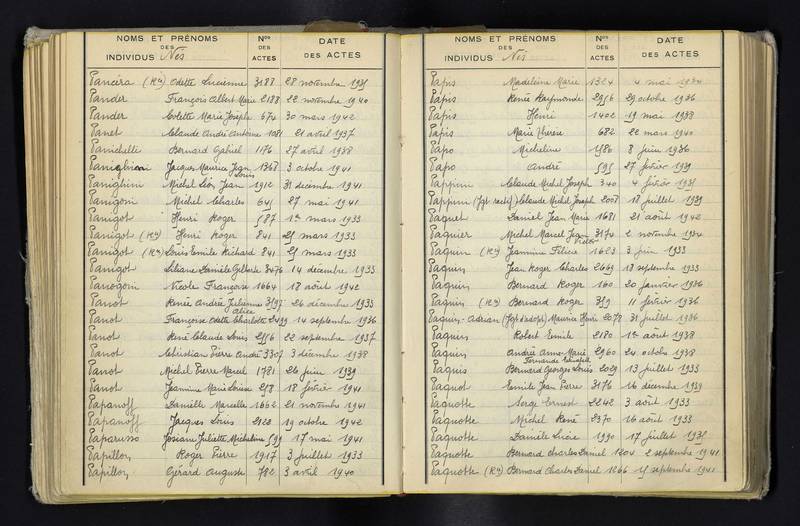 NOMS ET PRÉNOMS
DES
INDIVIDUS Nés
Nos
DES
ACTES
DATE
DES ACTES
Pancera (Rn) Odette Lucienne 3188 28 novembre 1935
Pander François Albert Marie 2188 22 novembre 1940
Pander Colette Marie Josèphe 674 30 mars 1942
Panet Claude André Antoine 1081 21 avril 1937
Panichelli Bernard Gabriel 1176 27 avril 1938
Panighini Jacques Maurice Jean Louis 1368 3 octobre 1941
Panighini Michel Léo Jean 1912 31 décembre 1941
Panigoni Michel Charles 645 27 mai 1941
Panigot Henri Roger 587 1er mars 1933
Panigot (Rn) Henri Roger 841 25 mars 1933
Panigot (Rn) Louis Emile Richard 841 25 mars 1933
Panigot Liliane Danièle Gilberte 3476 14 décembre 1933
Panogoni Nicole Françoise 1664 18 août 1942
Panot Renée Andrée Julienne Alice 3595 26 décembre 1933
Panot Françoise Odette Charlotte 2499 14 septembre 1936
Panot René Claude Louis 2556 22 septembre 1937
Panot Christian Pierre André 3307 3 décembre 1938
Panot Michel Pierre Marcel 1781 26 juin 1939
Panot Jeannine Marie Louise 258 18 février 1941
Papanoff Danielle Marcelle 1662 21 novembre 1941
Papanoff Jacques Louis 2120 19 octobre 1942
Paparusso Josiane Juliette Micheline 599 17 mai 1941
Papillon Roger Pierre 1917 3 juillet 1933
Papillon Gérard Auguste 782 3 avril 1940
NOMS ET PRÉNOMS
DES
INDIVIDUS Nés
Nos
DES
ACTES
DATE
DES ACTES
Papis Madeleine Marie 1324 4 mai 1934
Papis Renée Raymonde 2956 29 octobre 1936
Papis Henri 1402 19 mai 1938
Papis Marie Thérèse 682 22 mars 1940
Papo Micheline 1580 8 juin 1936
Papo André 595 27 février 1939
Pappini Claude Michel Joseph 340 4 février 1935
Pappini (Jgt rectif) Claude Michel Joseph 2005 18 juillet 1939
Paquet Daniel Jean Marie 1681 21 août 1942
Paquier Michel Marcel Jean Victor 3174 2 novembre 1934
Paquin (Rn) Jeannine Félicie 1623 3 juin 1933
Paquin Jean Roger Charles 2669 18 septembre 1933
Paquin Bernard Roger 160 20 janvier 1936
Paquin (Rn) Bernard Roger 359 11 février 1936
Paquin-Adrian (Jgt d'adopt) Maurice Henri 2078 31 juillet 1936
Paquin Robert Emile 2180 1er août 1938
Paquin Andrée Anne-Marie Fernande Elisabeth 2960 24 octobre 1938
Paquis Bernard Georges Louis 2029 13 juillet 1933
Paquot Emile Jean Pierre 3176 16 décembre 1939
Paquotte Serge Ernest 2242 3 août 1933
Paquotte Michel René 2370 16 août 1933
Paquotte Danièle Lucie 1990 17 juillet 1935
Paquotte Bernard Charles Daniel 1204 2 septembre 1941
Paquotte (Rn) Bernard Charles Daniel 1266 15 septembre 1941